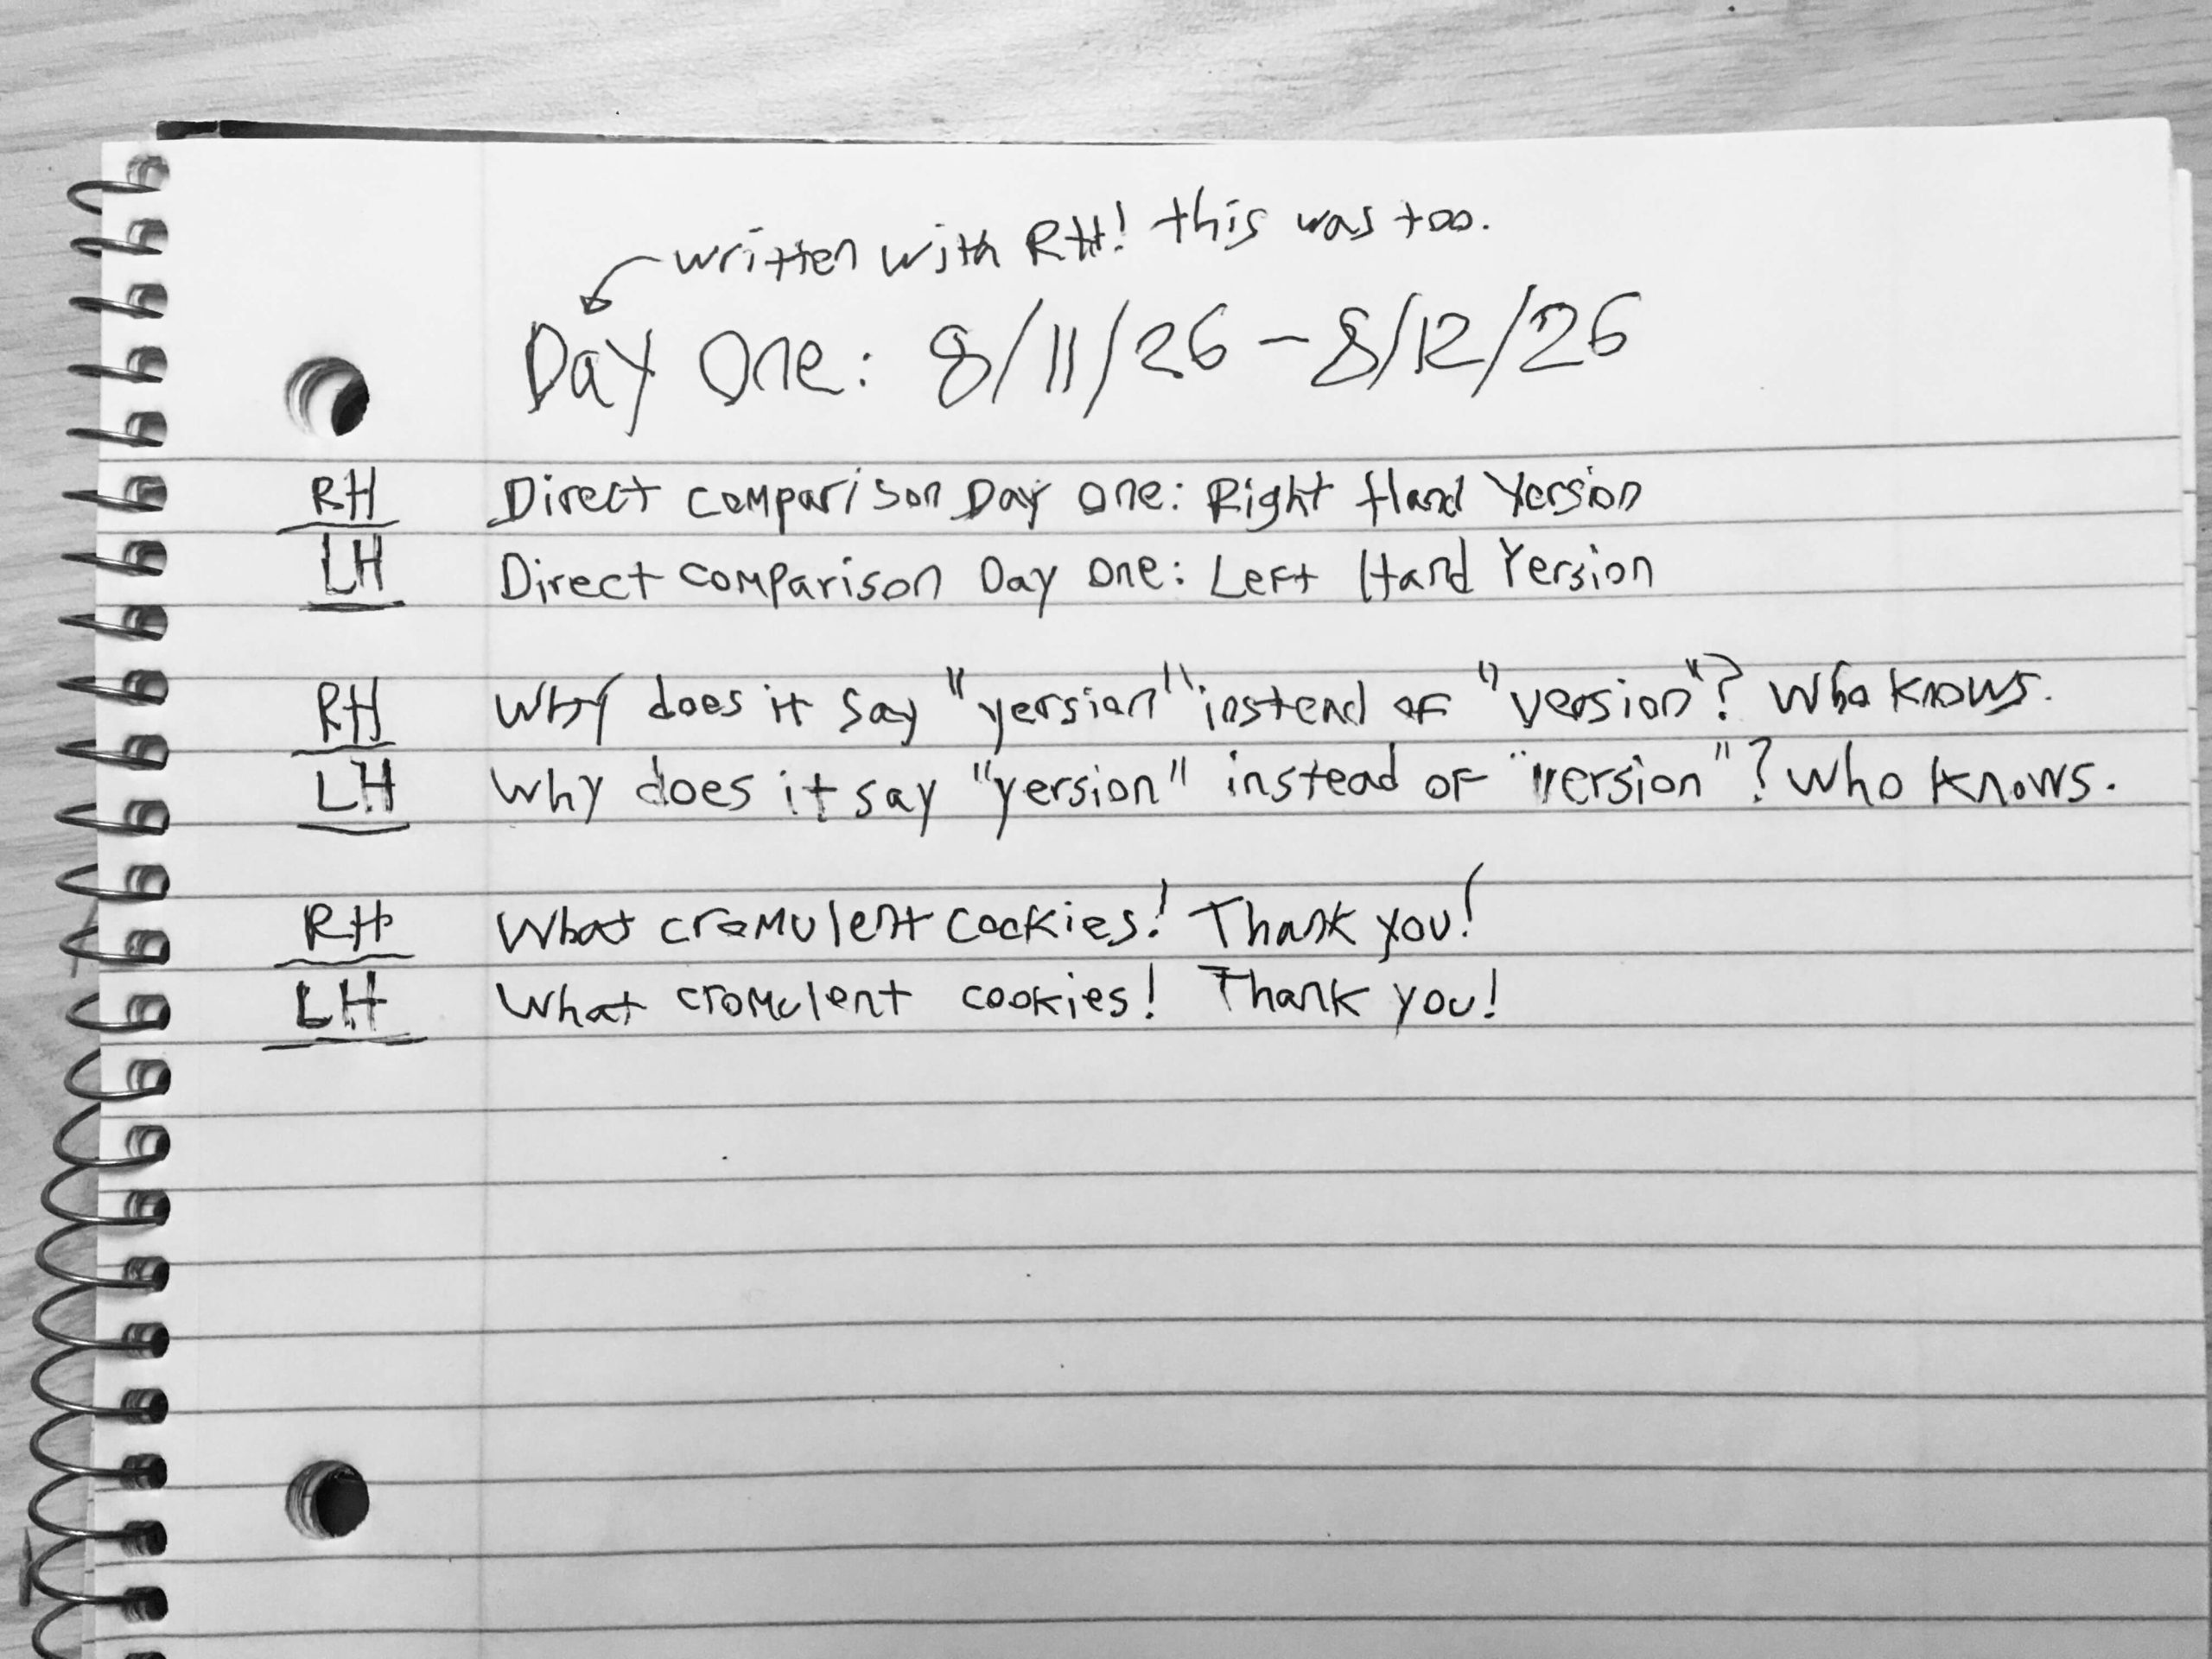 written with RH! this was too.
Day One: 8/11/26 - 8/12/26
RH Direct comparison Day one: Right Hand Yersion
LH Direct comparison Day one: Left Hand Yersion
RH Why does it say "yersion" instead of "version"? Who knows.
LH Why does it say "yersion" instead of "version"? Who knows.
RH What cromulent cookies! Thank you!
LH What cromulent cookies! Thank you!